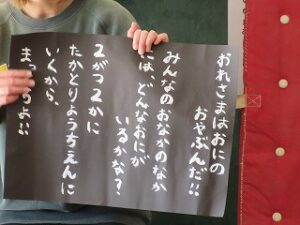 おれさまはおにの
おやぶんだ!!
みんなのおなかのなか
には、どんなおにが
いるかな?
2がつ2かに
たかとりようちえんに
いくから、